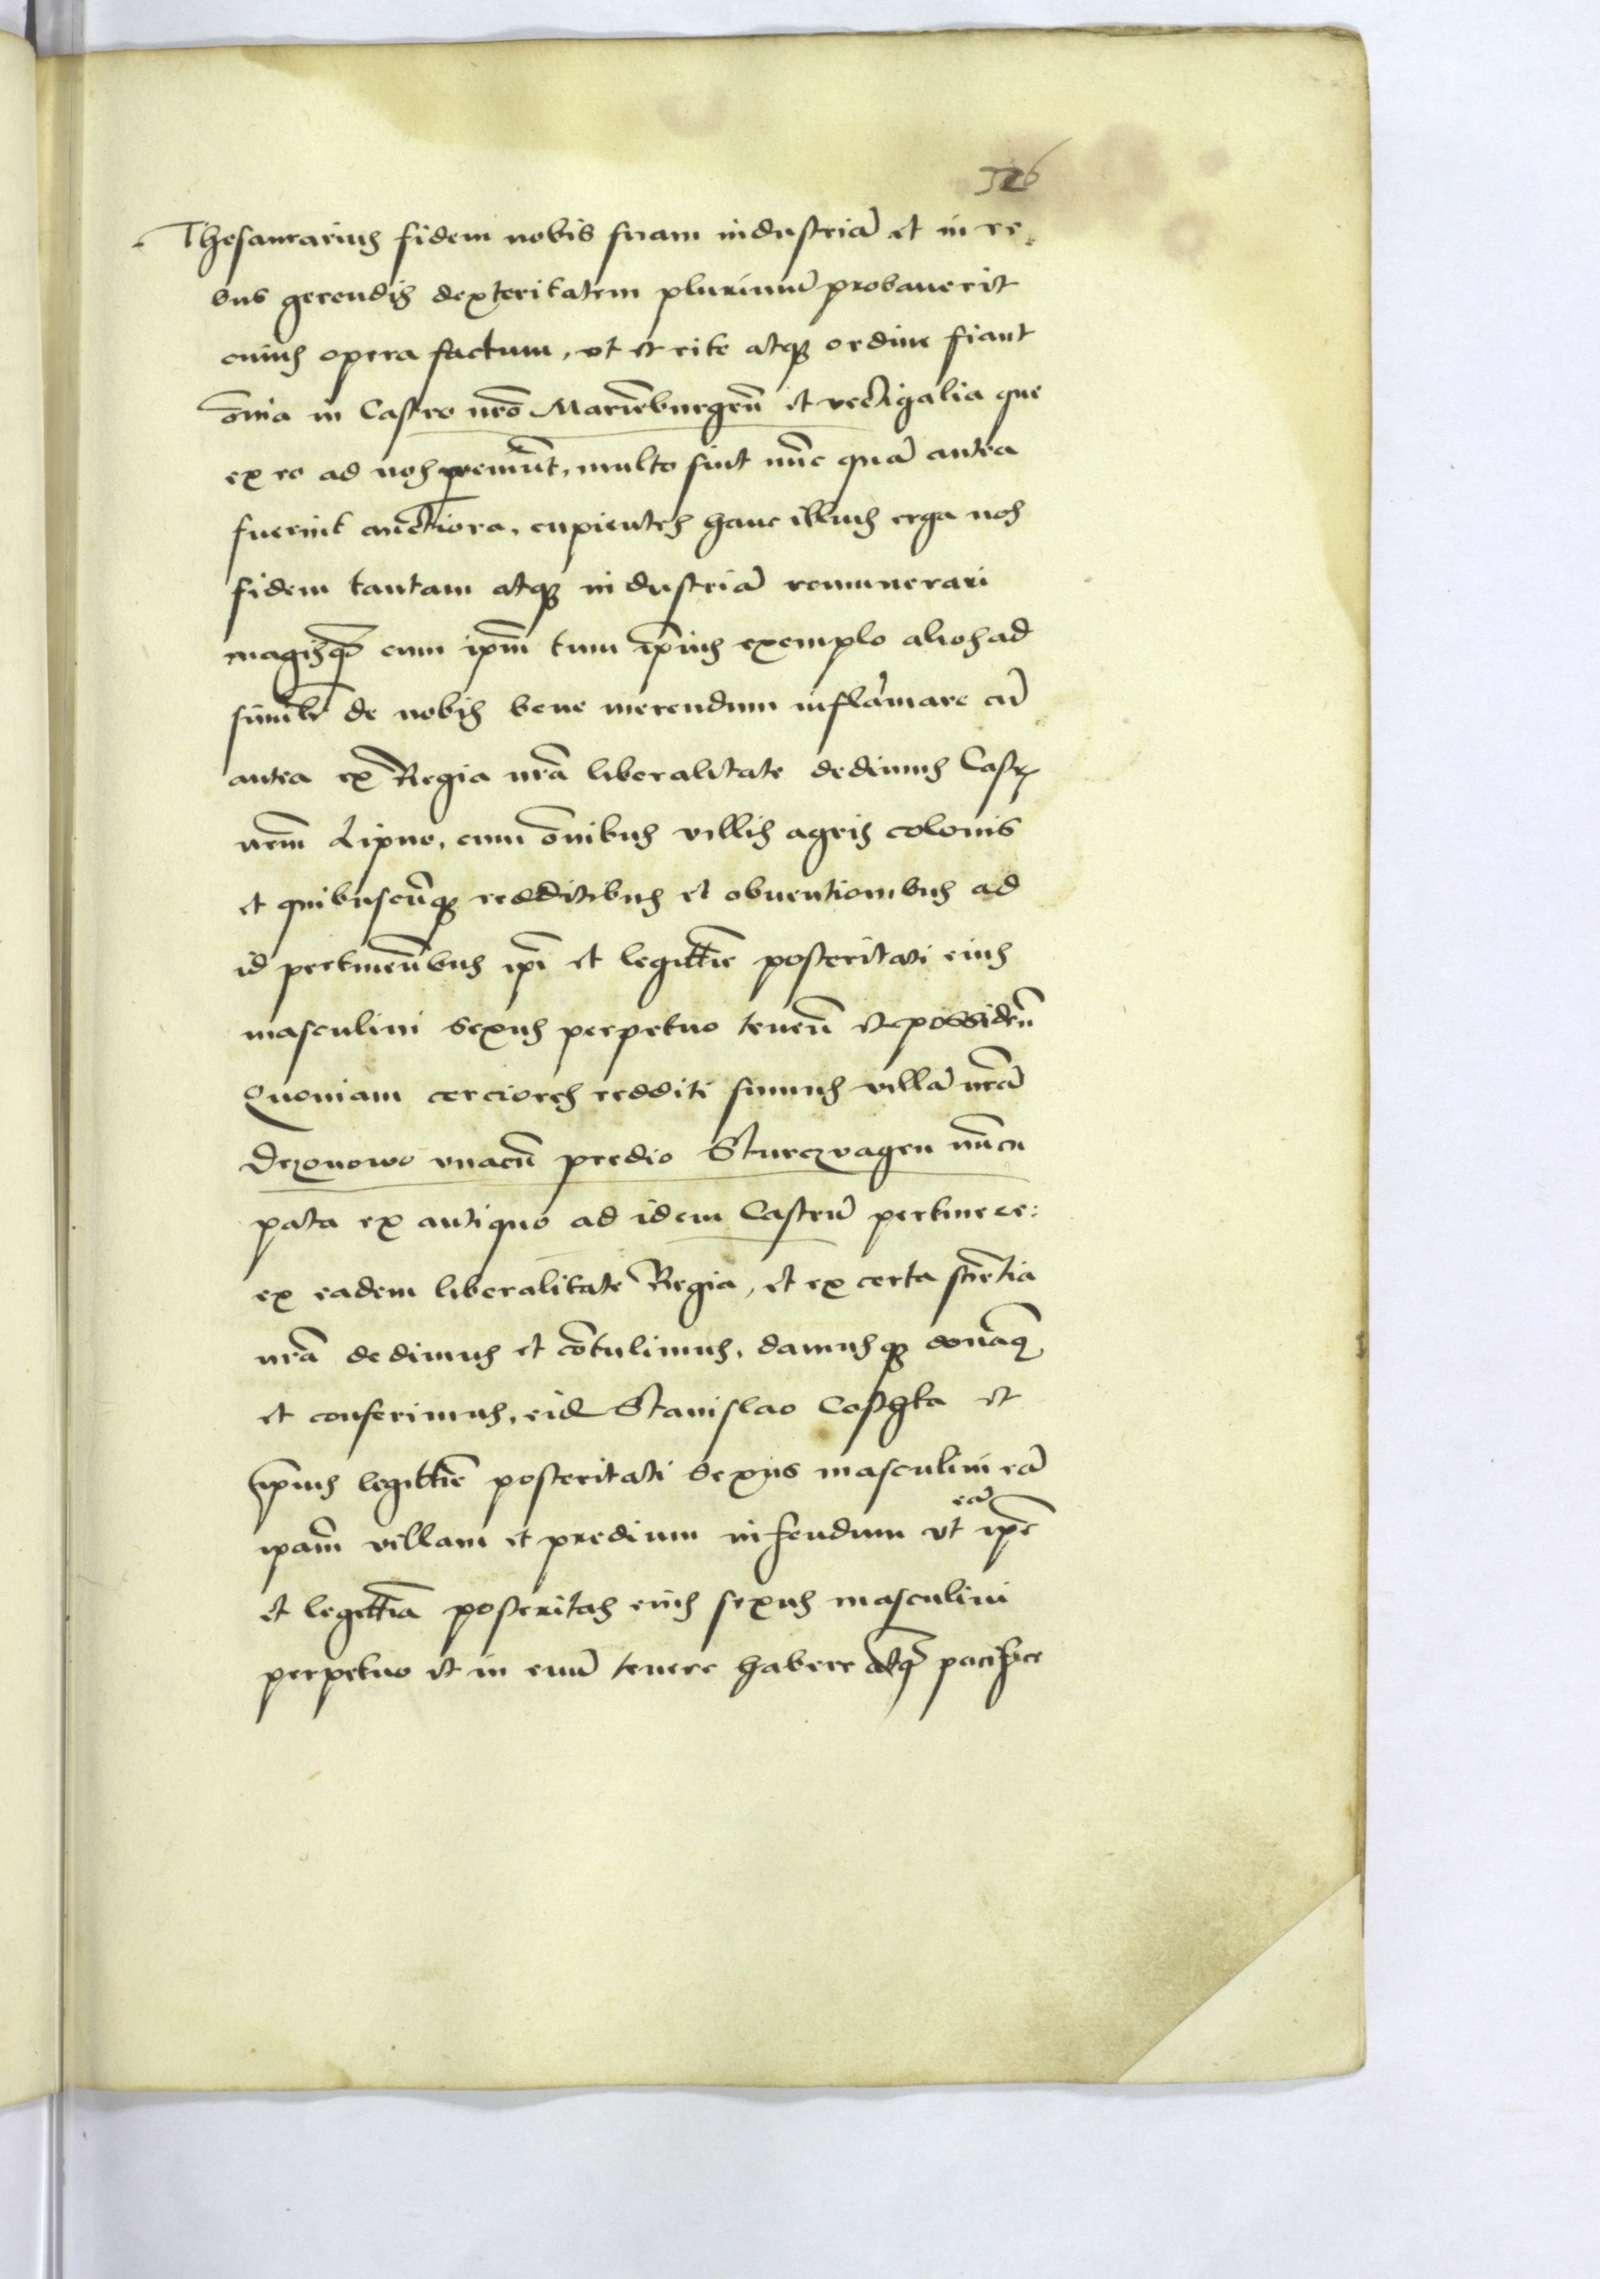 326
Thesaurarius fidem nobis suam industriā et in re-
bus gerendis dexteritatem plurimū probaverit
cuius opera factum, ut et rite atqꝫ ordine fiant
om̄ia in Castro nr̄o Marieburgeñ et vectigalia que
ex eo ad nos proveniūt, multo sint nūc quā antea
fuerint auctiora, cupientes hanc illius erga nos
fidem tantam atqꝫ industriā remunerari
magisqꝫ cum ip̄m tum ip̄ius exemplo alios ad
similr̄ de nobis bene merendum inflāmare cū
antea ex Regia nr̄a liberalitate dedimus Castr
nr̄m Lipno, cum om̄ibus villis agris colonis
et quibuscūqꝫ redditibus et obventionibus ad
id pertineñbus ip̄i et legittīe posteritati eius
masculini sexus perpetuo teneñ et possideñ
Quoniam cerciores redditi sumus villā nr̄ā
Dezonowo unacū predio Sturczvagen nūcu
pata ex antiquo ad idem Castrū pertinere:
ex eadem liberalitate Regia, et ex certa scīetia
nr̄a dedimus et cōtulimus, damusqꝫ donamꝰ
et conferimus, eid Stanislao Costhka et
ip̄ius legittīe posteritati sexus masculini eā
ipam̄ villam et predium in feudum ut eā ip̄e
et legittīa posteritas eius sexus masculini
perpetuo et in evū tenere habere atqꝫ pacifice